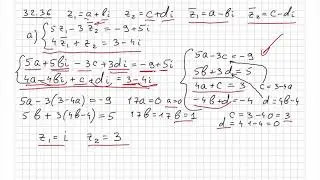 32.36 z₁=a+bi z₂=c+di z̄₁=a-bi z̄₂=c-di
a) { 5z₁-3z̄₂=-9+5i
4z̄₁+z₂=3-4i
{ 5a+5bi-3c+3di=-9+5i
4a-4bi+c+di=3-4i
{ 5a-3c=-9
5b+3d=5
4a+c=3
-4b+d=-4
c=3-4a
d=4b-4
5a-3(3-4a)=-9 17a=0 a=0
5b+3(4b-4)=5 17b=17 b=1
c=3-4·0=3
d=4·1-4=0
z₁=i z₂=3